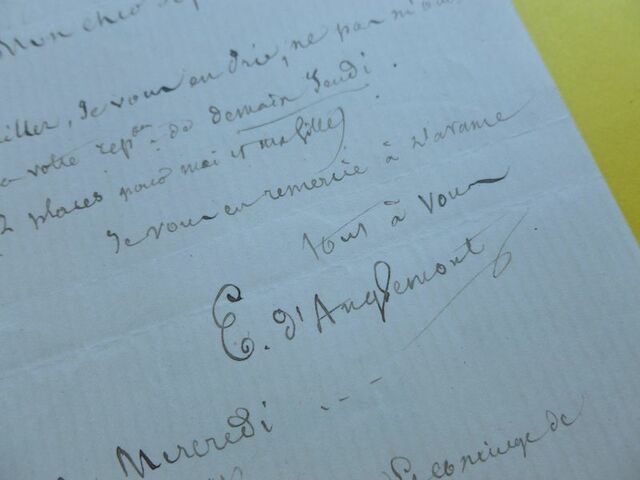 Mon cher
iller, je vous en prie, ne pas m'ou
a votre repon de demain Jeudi.
2 places pour moi et ma fille
Je vous en remercie à l'avance
tout à vous
E. d'Anglemont
Mercredi ---
de